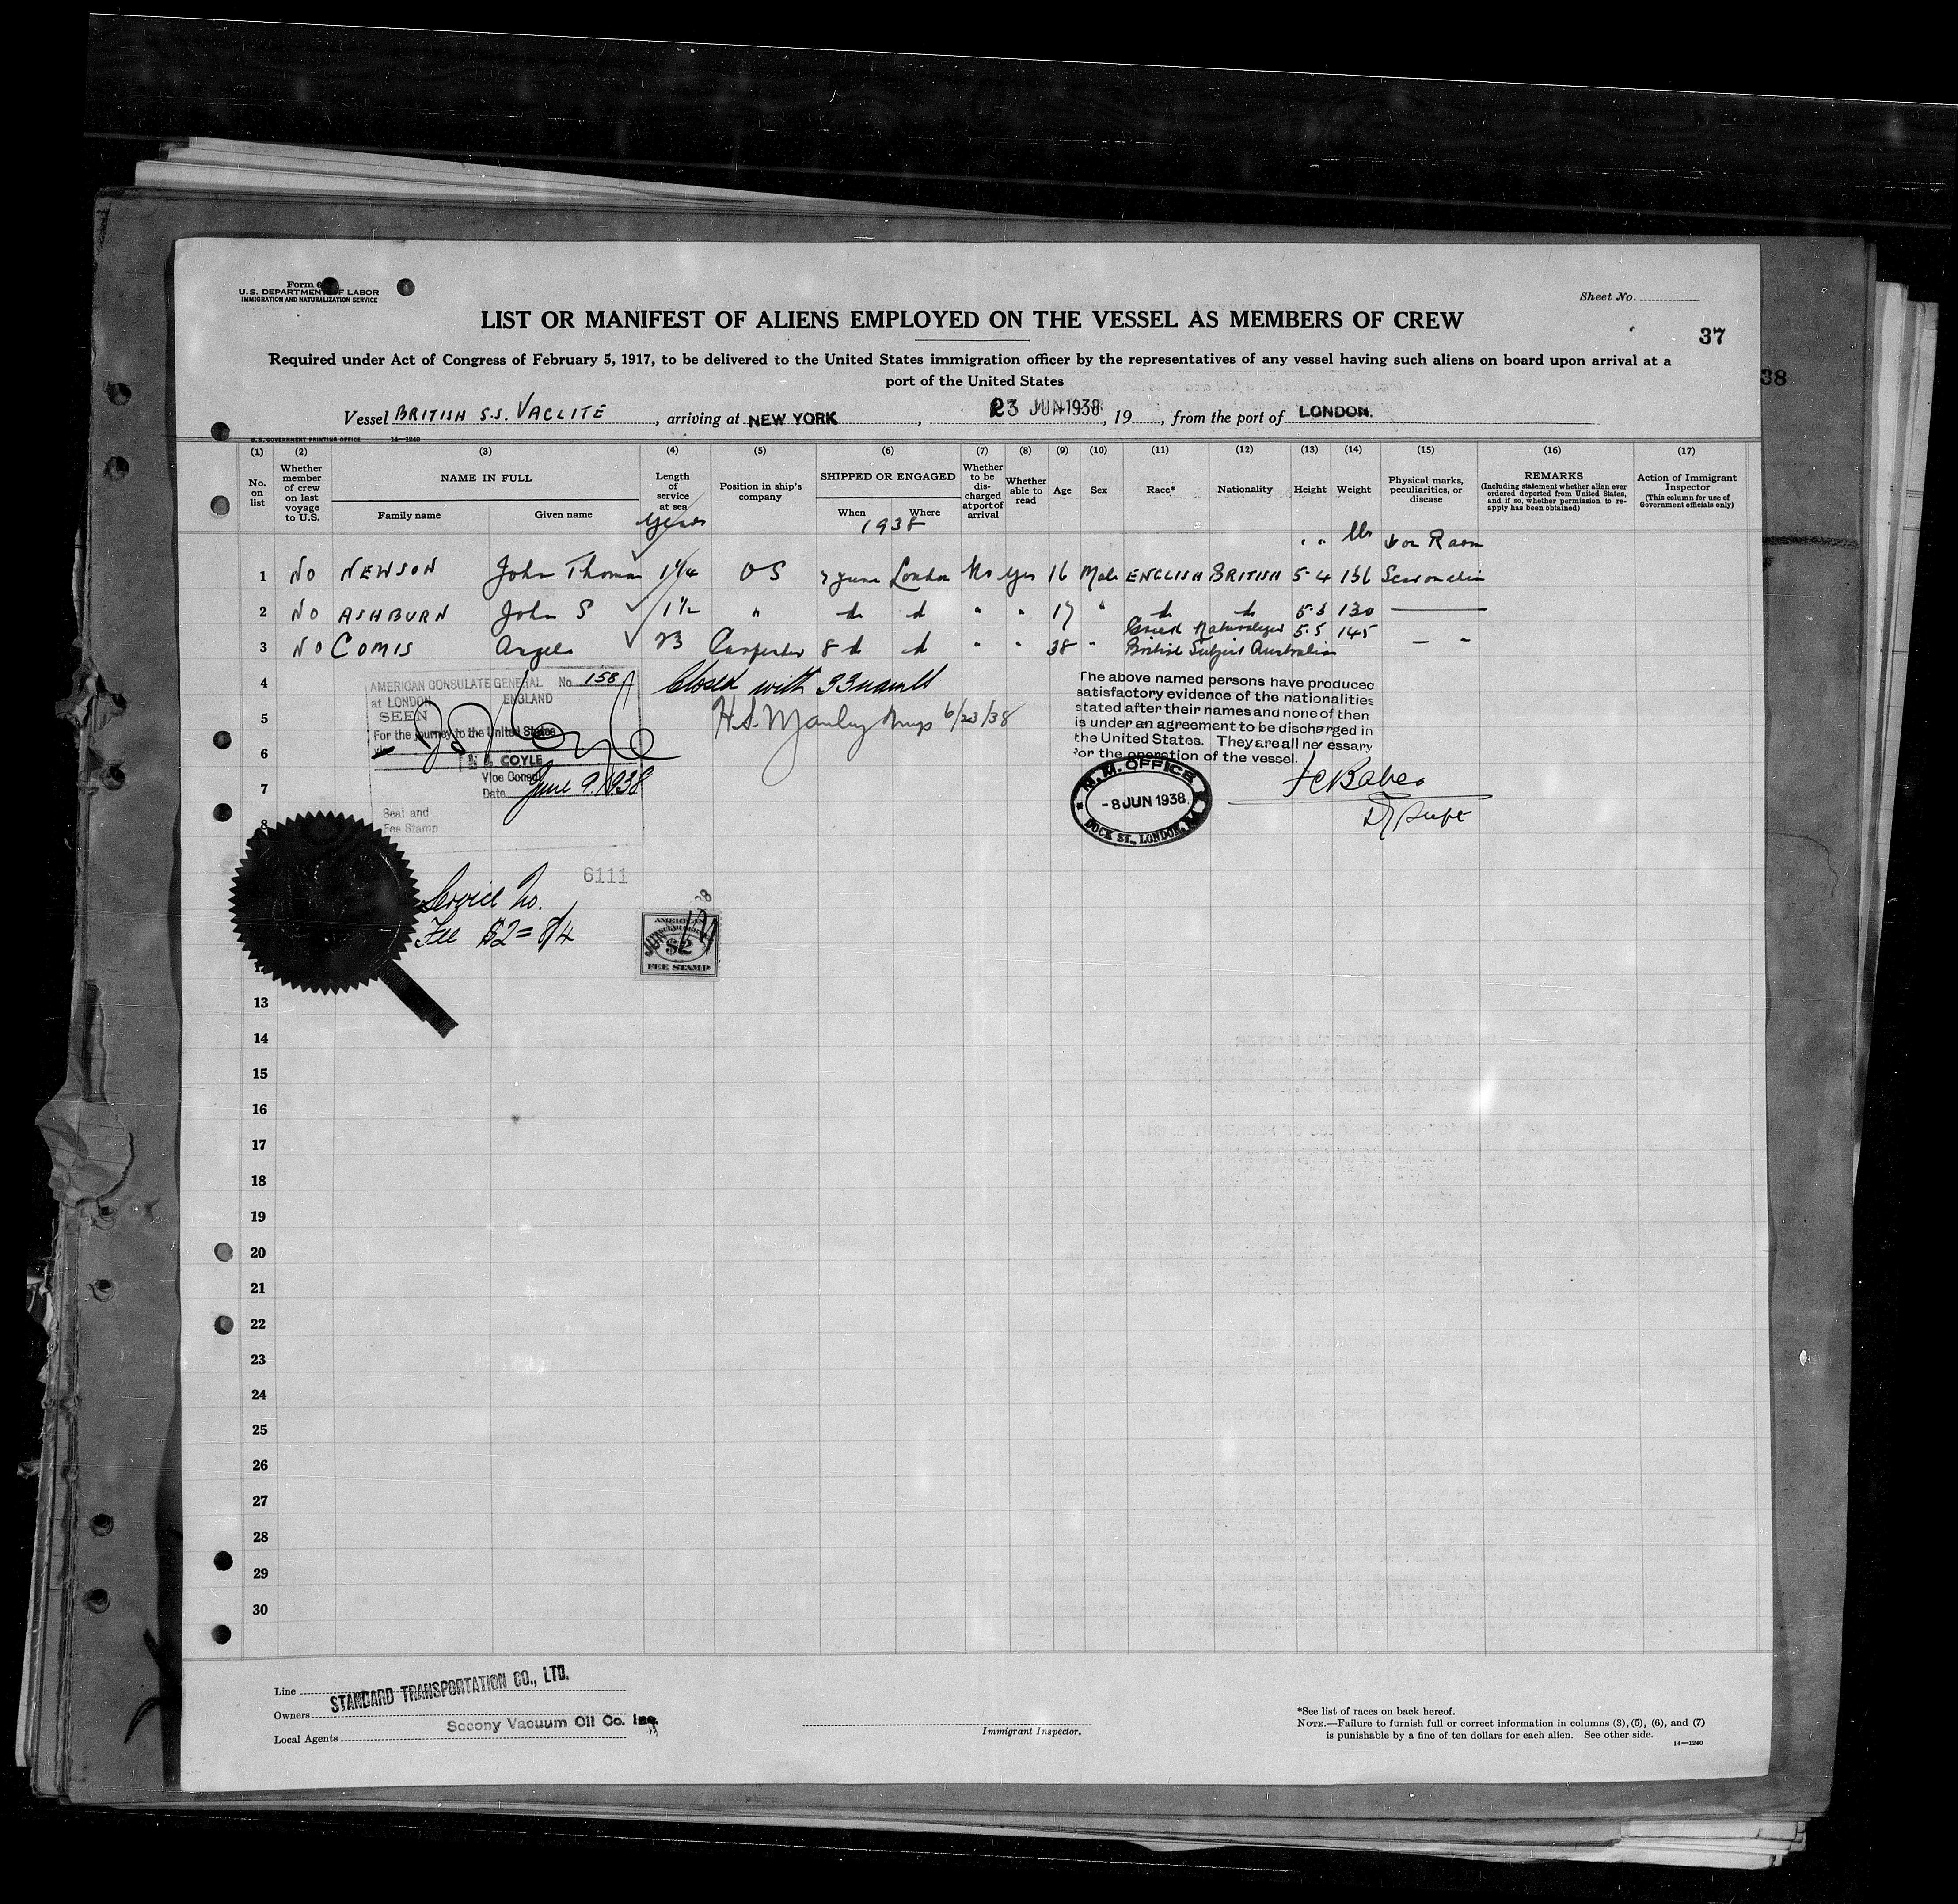 Form 6
U.S. DEPARTMENT OF LABOR
IMMIGRATION AND NATURALIZATION SERVICE
Sheet No.
LIST OR MANIFEST OF ALIENS EMPLOYED ON THE VESSEL AS MEMBERS OF CREW
37
Required under Act of Congress of February 5, 1917, to be delivered to the United States immigration officer by the representatives of any vessel having such aliens on board upon arrival at a
port of the United States
38
Vessel BRITISH S.S. VACLITE, arriving at NEW YORK, 23 JUN 1938, 19, from the port of LONDON.
U.S. GOVERNMENT PRINTING OFFICE 14—1240
(1) (2) (3) (4) (5) (6) (7) (8) (9) (10) (11) (12) (13) (14) (15) (16) (17)
No. on list
Whether member of crew on last voyage to U.S.
NAME IN FULL
Family name Given name
Length of service at sea
Years
Position in ship's company
SHIPPED OR ENGAGED
When Where
1938
Whether to be discharged at port of arrival
Whether able to read
Age Sex Race* Nationality Height Weight
Physical marks, peculiarities, or disease
REMARKS
(Including statement whether alien ever ordered deported from United States, and if so, whether permission to reapply has been obtained)
Action of Immigrant Inspector
(This column for use of Government officials only)
' " lbs
1 No NEWSON John Thomas 1 1/4 OS 7 June London No Yes 16 Male ENGLISH BRITISH 5-4 136 Scar on chin
2 No ASHBURN John S 1 1/2 " do do " " 17 " do do 5.8 130 —
Greek Naturalized 5.5 145
3 No COMIS Angelo 23 Carpenter 8 do do " " 38 " British Subject Australian — "
4
5
6
7
8
AMERICAN CONSULATE GENERAL No 158
at LONDON ENGLAND
SEEN
For the journey to the United States
COYLE
Vice Consul
Date June 9, 1938
Seal and
Fee Stamp
Closed with 33 names
H.S. Manley Insp 6/23/38
The above named persons have produced
satisfactory evidence of the nationalities
stated after their names and none of them
is under an agreement to be discharged in
the United States. They are all necessary
for the operation of the vessel.
M.M. OFFICE
-8 JUN 1938
DOCK ST., LONDON, E.
6111
Service No.
Fee $2 = 8/4
AMERICAN
$2
FEE STAMP
13
14
15
16
17
18
19
20
21
22
23
24
25
26
27
28
29
30
Line
STANDARD TRANSPORTATION CO., LTD.
Owners
Socony Vacuum Oil Co. Inc.
Local Agents
Immigrant Inspector.
*See list of races on back hereof.
NOTE.—Failure to furnish full or correct information in columns (3), (5), (6), and (7)
is punishable by a fine of ten dollars for each alien. See other side.
14—1240